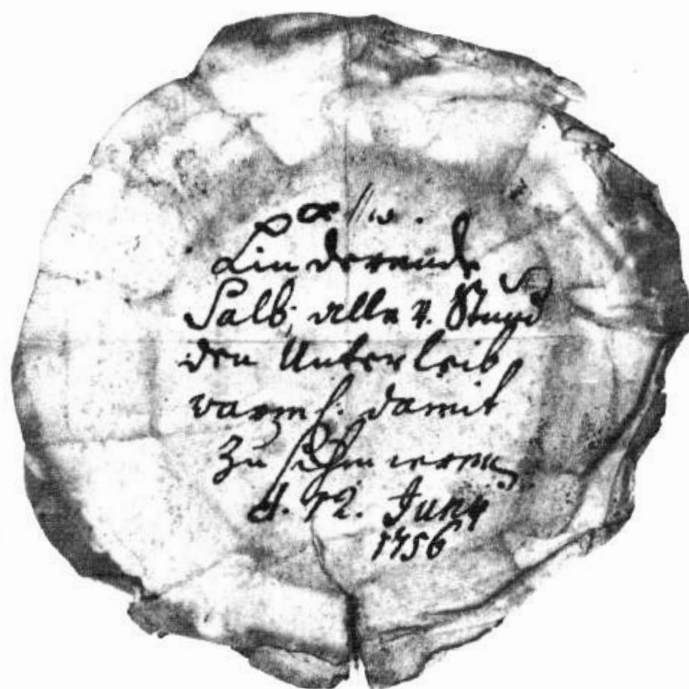 Linderende
Salb, alle 4. Stund
den Unterleib
warm damit
zu schmieren
d. 12. Juny
1756